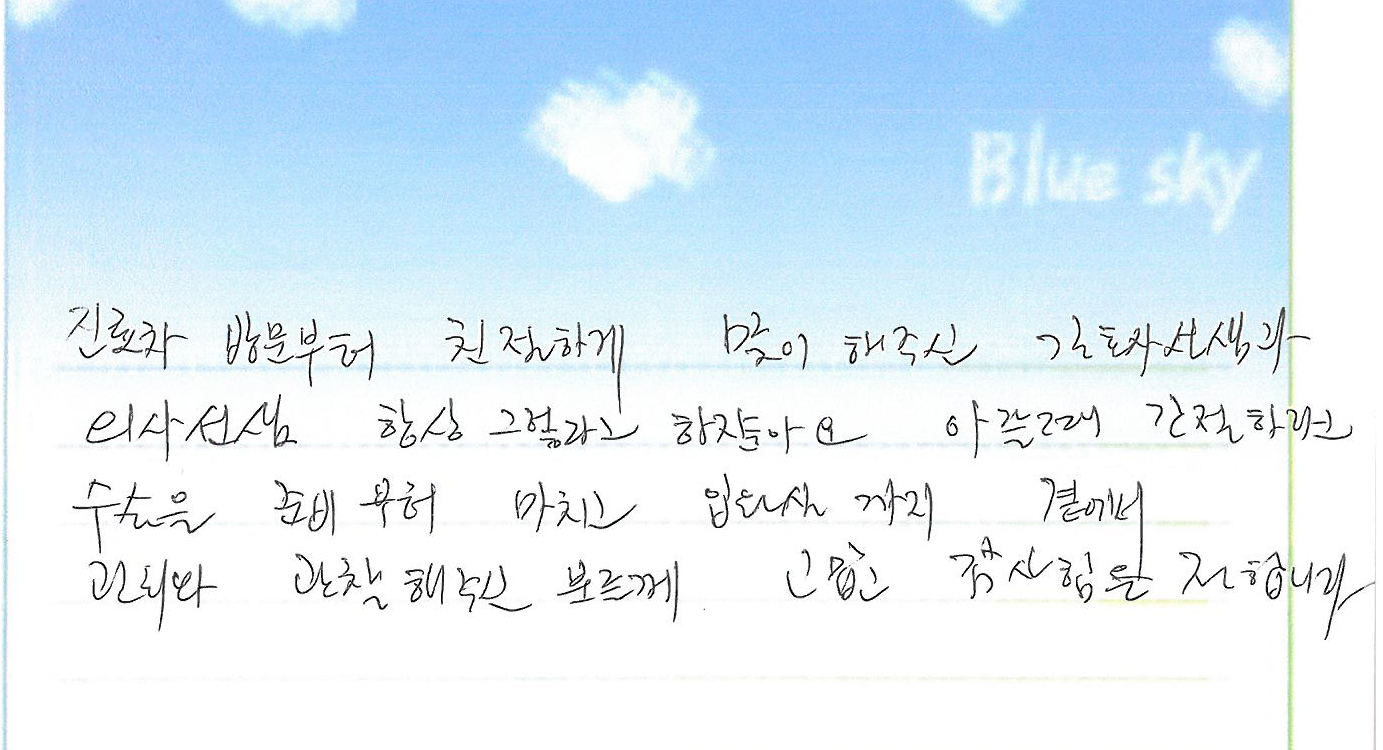 Blue sky
진료차 방문부터 친절하게 맞이 해주신 간호사선생과
의사선생 항상 그렇다고 하잖아요 아플때 간절하다고
수술을 준비 부터 마치고 입원실 까지 곁에서
관리와 관찰 해주신 모르게 고맙고 감사함을 전합니다